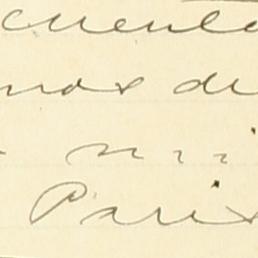 cuento
nos de
mi
Paris